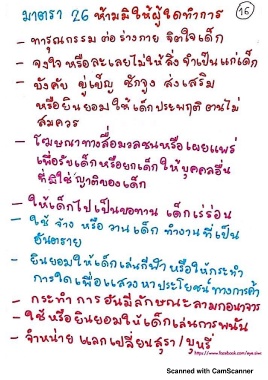 มาตรา 26 ห้ามมิให้ผู้ใดทำการ
16
- ทารุณกรรม ต่อร่างกาย จิตใจเด็ก
- จงใจ หรือละเลยไม่ให้สิ่งจำเป็นแก่เด็ก
- บังคับ ขู่เข็ญ ชักจูง ส่งเสริม
หรือยินยอมให้เด็กประพฤติตนไม่
สมควร
- โฆษณาทางสื่อมวลชนหรือเผยแพร่
เพื่อรับเด็กหรือยกเด็กให้บุคคลอื่น
ที่มิใช่ญาติของเด็ก
- ให้เด็กไปเป็นขอทาน เด็กเร่ร่อน
- ใช้ จ้าง หรือ วาน เด็ก ทำงาน ที่เป็น
อันตราย
- ยินยอมให้เด็กเล่นกีฬา หรือให้กระทำ
การใดเพื่อแสวงหาประโยชน์ทางการค้า
- กระทำการอันมีลักษณะลามกอนาจาร
- ใช้หรือยินยอมให้เด็กเล่นการพนัน
- จำหน่าย แลกเปลี่ยนสุรา/บุหรี่
https://www.facebook.com/aye.siwi
Scanned with CamScanner